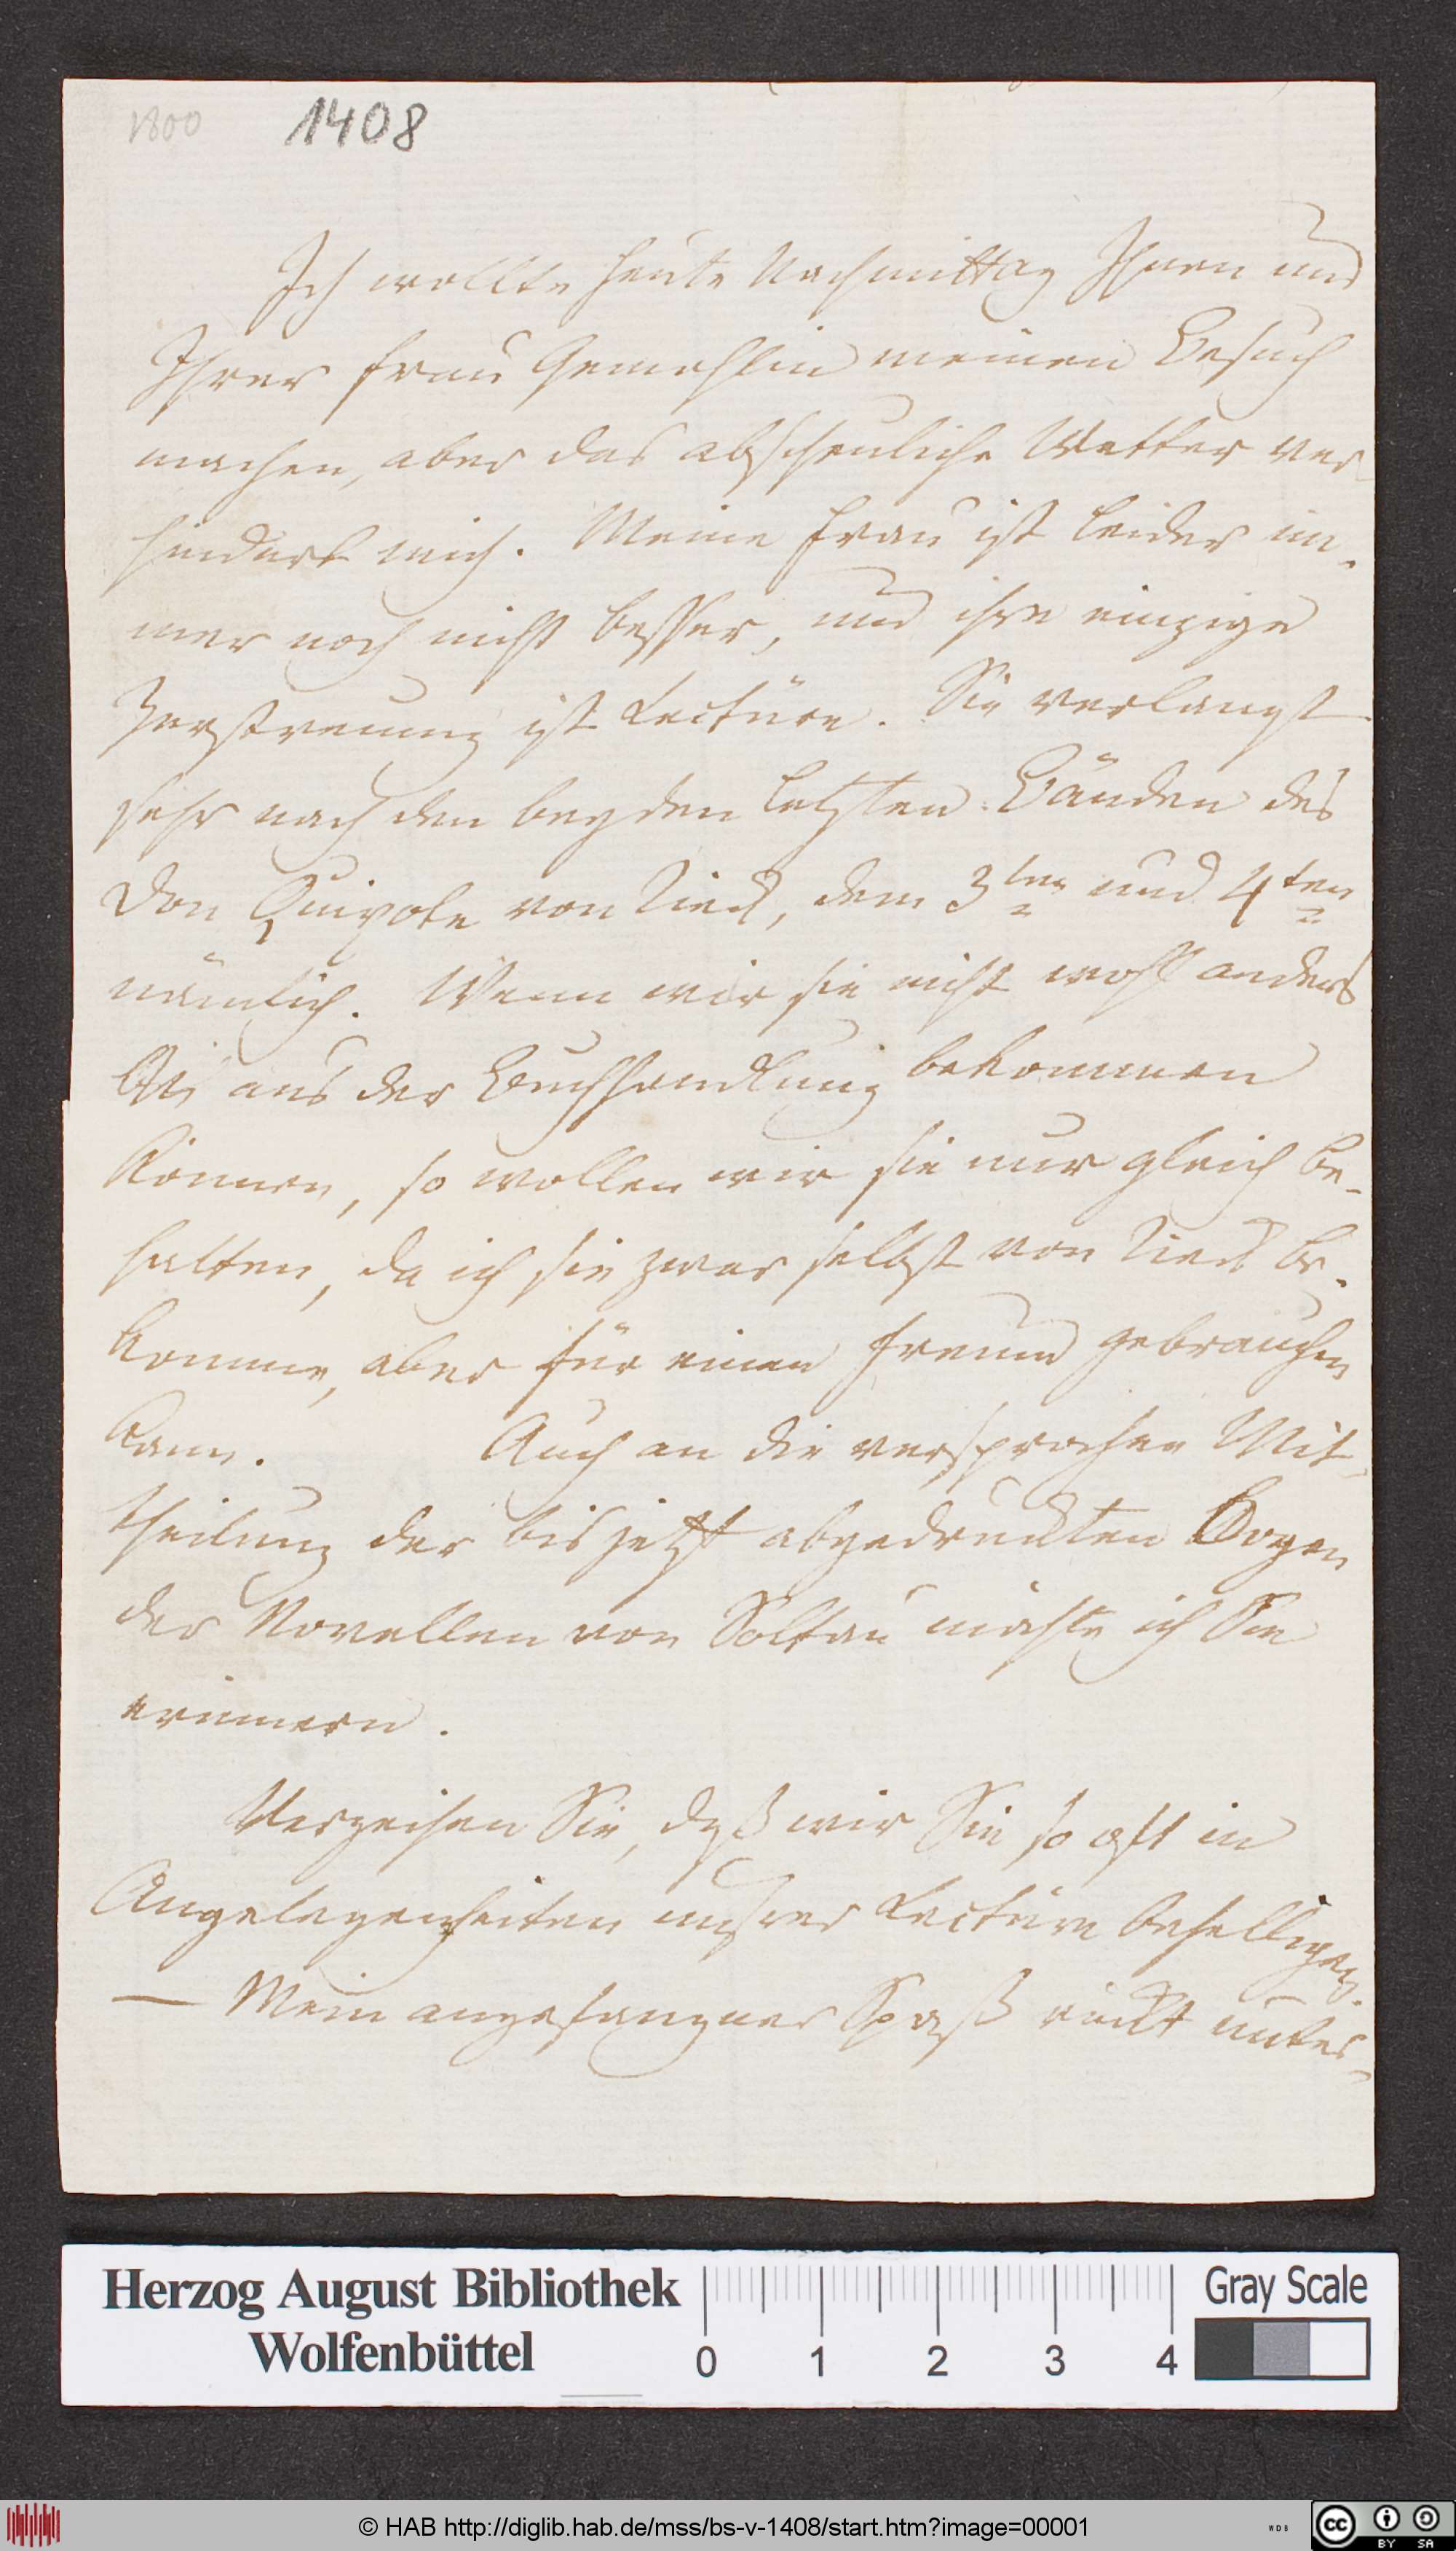 1800 1408
Ich wollte heute Nachmittag Ihnen und
Ihrer Frau Gemahlin meinen Besuch
machen, aber das abscheuliche Wetter ver-
hindert mich. Meine Frau ist leider im-
mer noch nicht besser, und ihre einzige
Zerstreuung ist Lectüre. Sie verlangt
sehr nach den beyden letzten Bänden des
Don Quixote von Tieck, dem 3ten und 4ten
nämlich. Wenn wir sie nicht wohl anders
als aus der Buchhandlung bekommen
können, so wollen wir sie nur gleich be-
halten, da ich sie zwar selbst von Tieck be-
komme, aber für einen Freund gebrauchen
kann. Auch an die versprochne Mit-
theilung der bis jetzt abgedruckten Bogen
der Novellen von Soltau möchte ich Sie
erinnern.
Verzeihen Sie, daß wir Sie so oft in
Angelegenheiten unsrer Lectüre behelligen.
— Mein angefangner Spaß rückt unter-
Herzog August Bibliothek
Wolfenbüttel
0 1 2 3 4
Gray Scale
© HAB http://diglib.hab.de/mss/bs-v-1408/start.htm?image=00001
WDB
cc BY SA